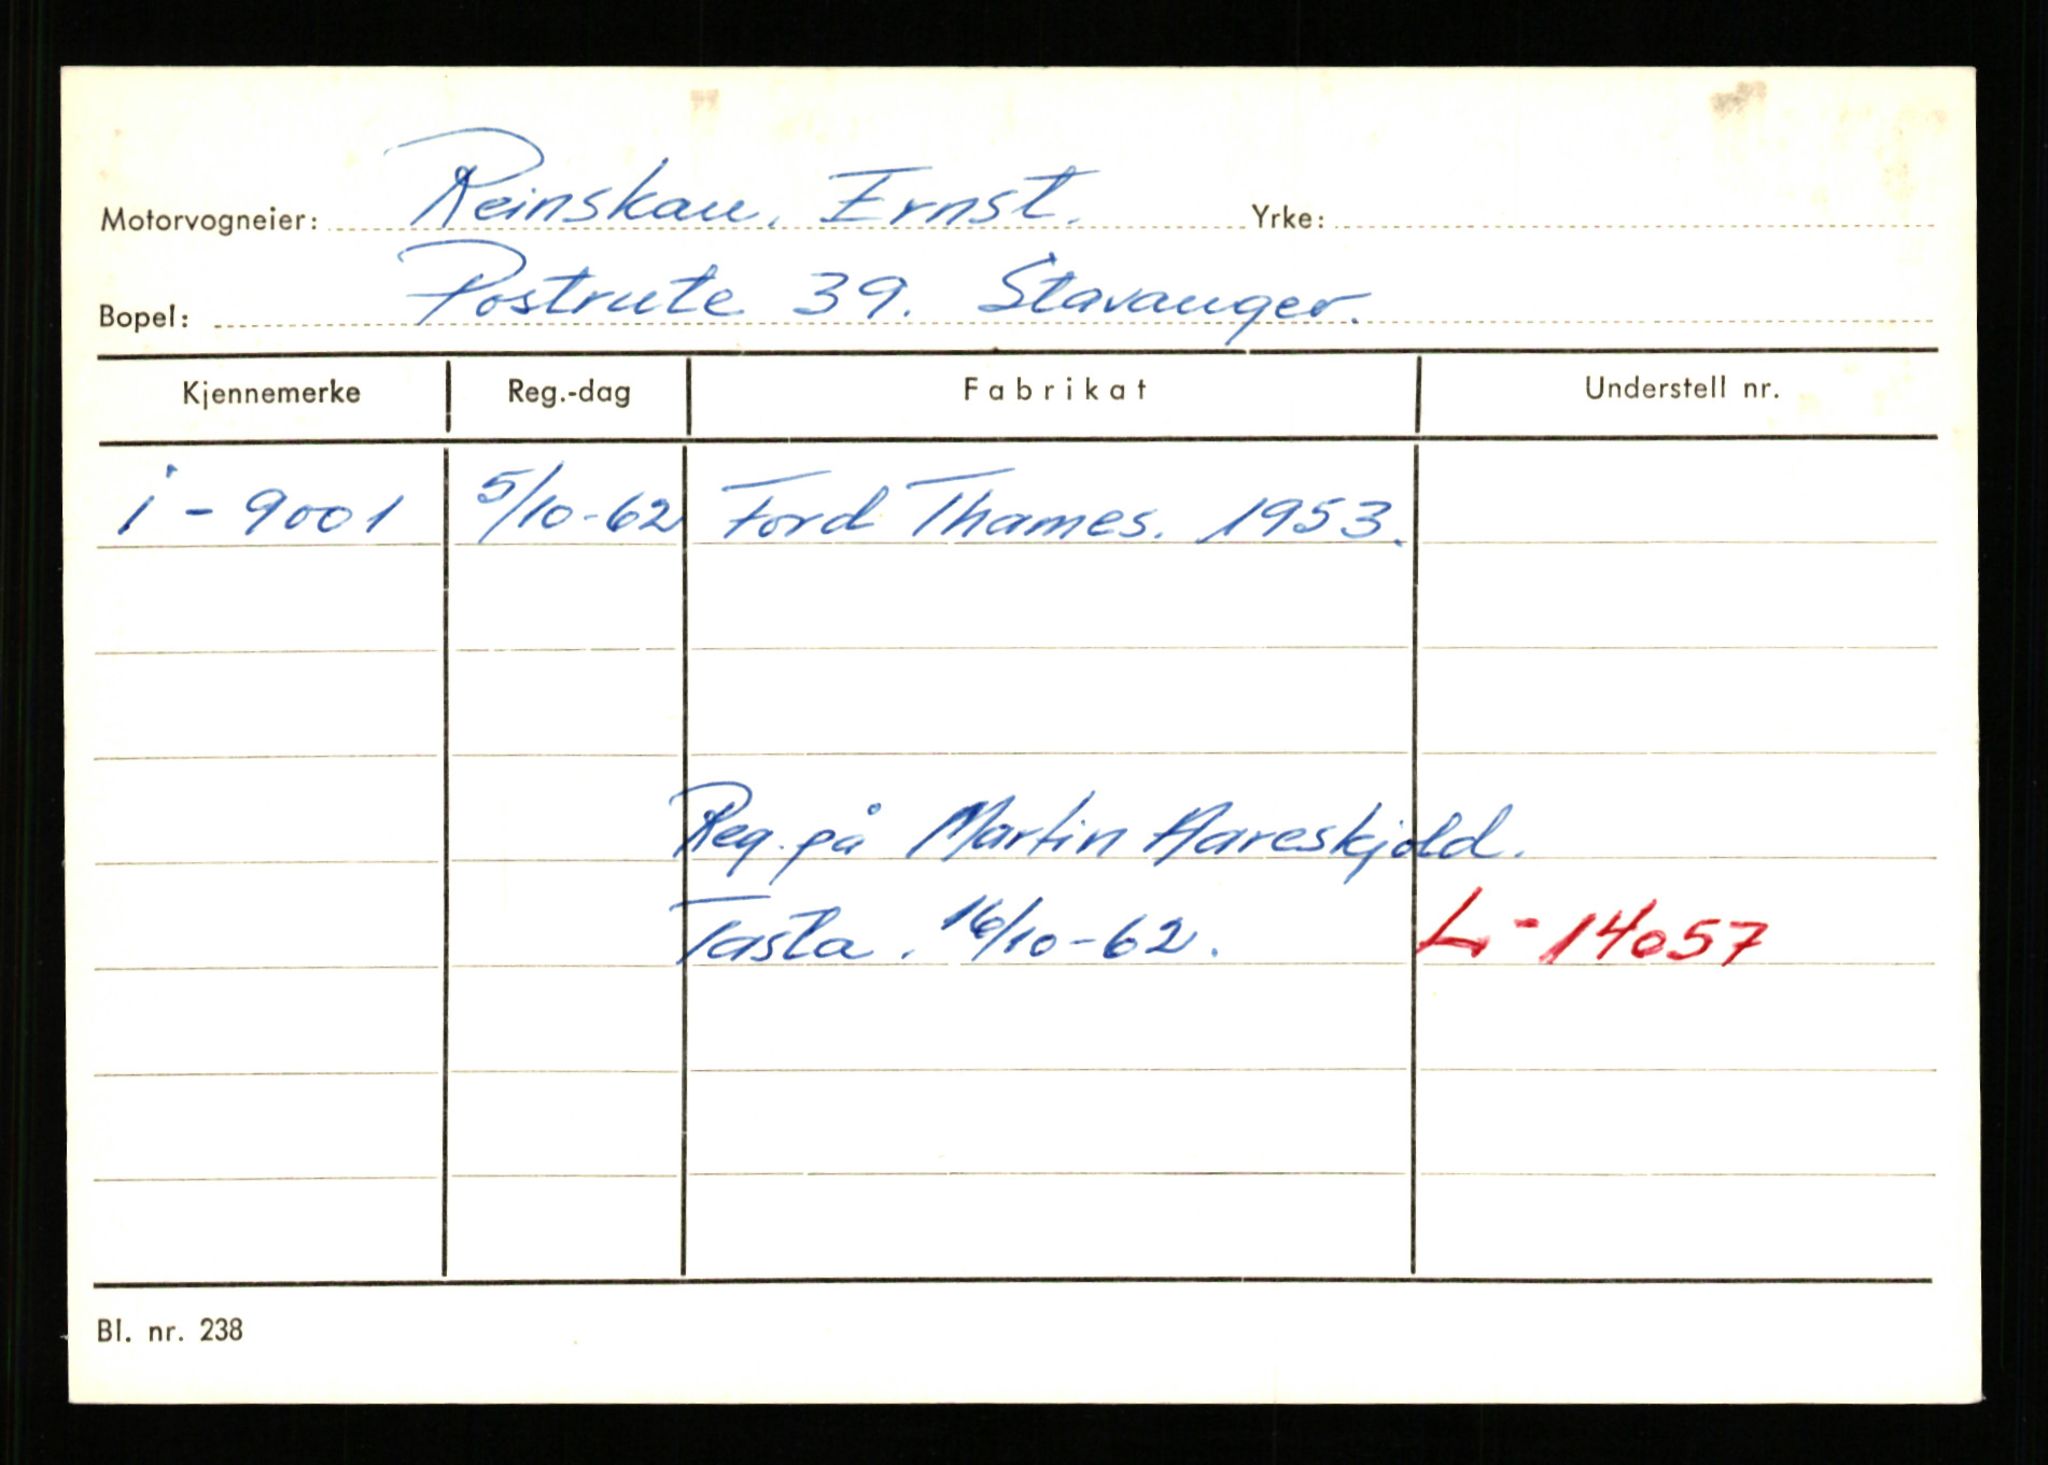 Motorvogneier: Reinskau, Ernst. Yrke:
Bopel: Postrute 39. Stavanger.
Kjennemerke Reg.-dag Fabrikat Understell nr.
i - 9001 5/10-62 Ford Thames. 1953.
Reg. på Martin Hareskjold.
Tasta. 16/10-62. L-14057
Bl. nr. 238